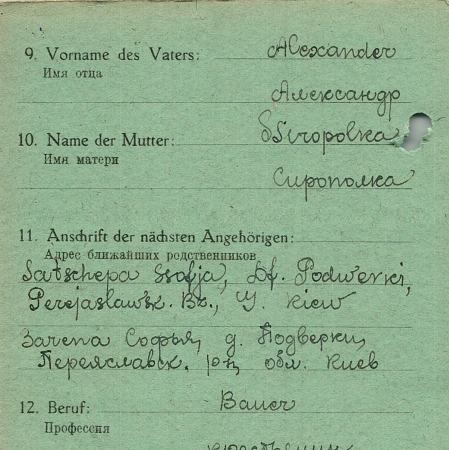 9. Vorname des Vaters: Alexander
Имя отца
Александр
10. Name der Mutter: Ssiropolka
Имя матери
Сирополка
11. Anschrift der nächsten Angehörigen:
Адрес ближайших родственников
Satschepa Ssofja, Df. Podwerki,
Perejaslawsk. Bz., G. Kiew
Зачепа Софья, д. Подверки,
Переяславск. р-н, обл. Киев
12. Beruf: Bauer
Профессия